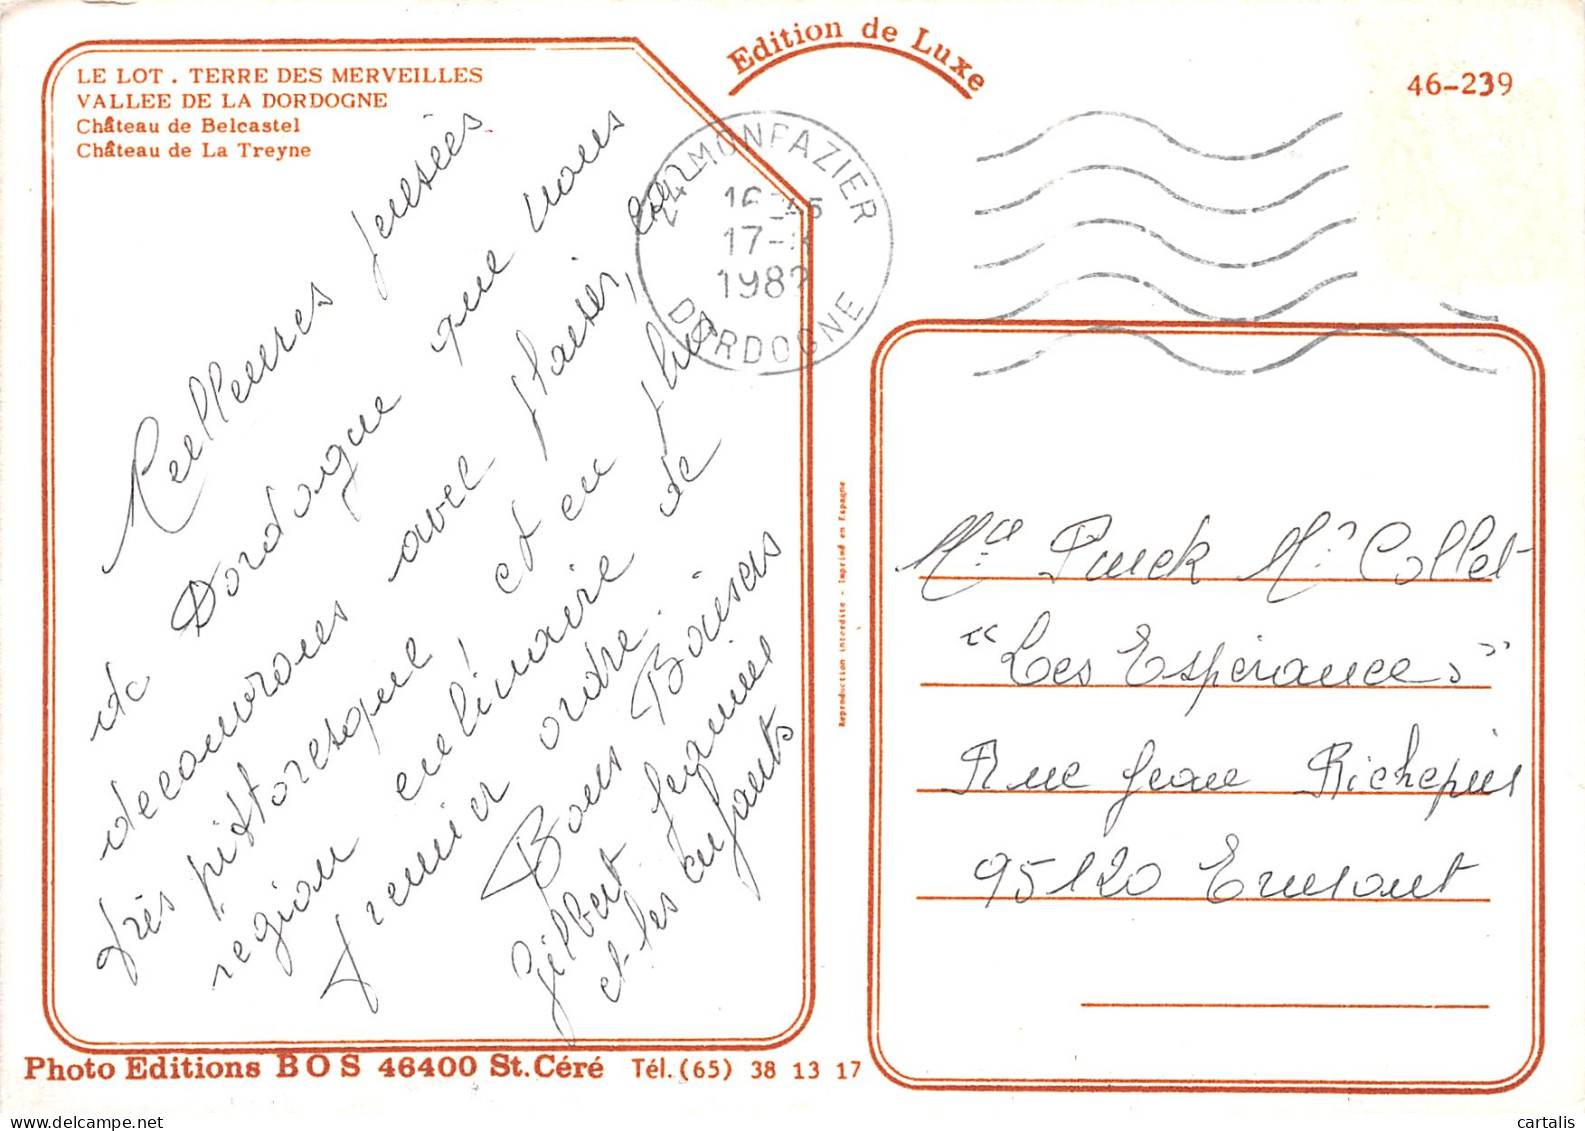 Edition de Luxe
46-239
LE LOT . TERRE DES MERVEILLES
VALLEE DE LA DORDOGNE
Château de Belcastel
Château de La Treyne
24 MONPAZIER
17-
198
DORDOGNE
Meilleures pensées
de Dordogne que nous
decouvrons avec plaisir, car
très pittoresque et en plus
région culinaire de
premier ordre.
Bons Baisers
Gilbert Jeanine
et les enfants
Reproduction interdite - Imprimé en Espagne
Mme Punck Mr Collet
"Les Espérances"
Rue Jean Richepin
95120 Ermont
Photo Editions BOS 46400 St.Céré Tél.(65) 38 13 17
cartalis